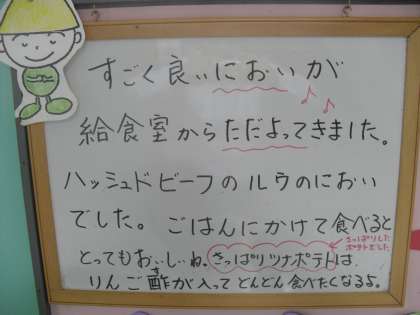 すごく良いにおいが
給食室からただよってきました。
ハッシュドビーフのルウのにおい
でした。ごはんにかけて食べると
さっぱりした
ポテトでした
とってもおいしいね。さっぱりツナポテトは、
りんご酢が入ってどんどん食べたくなるよ。
す